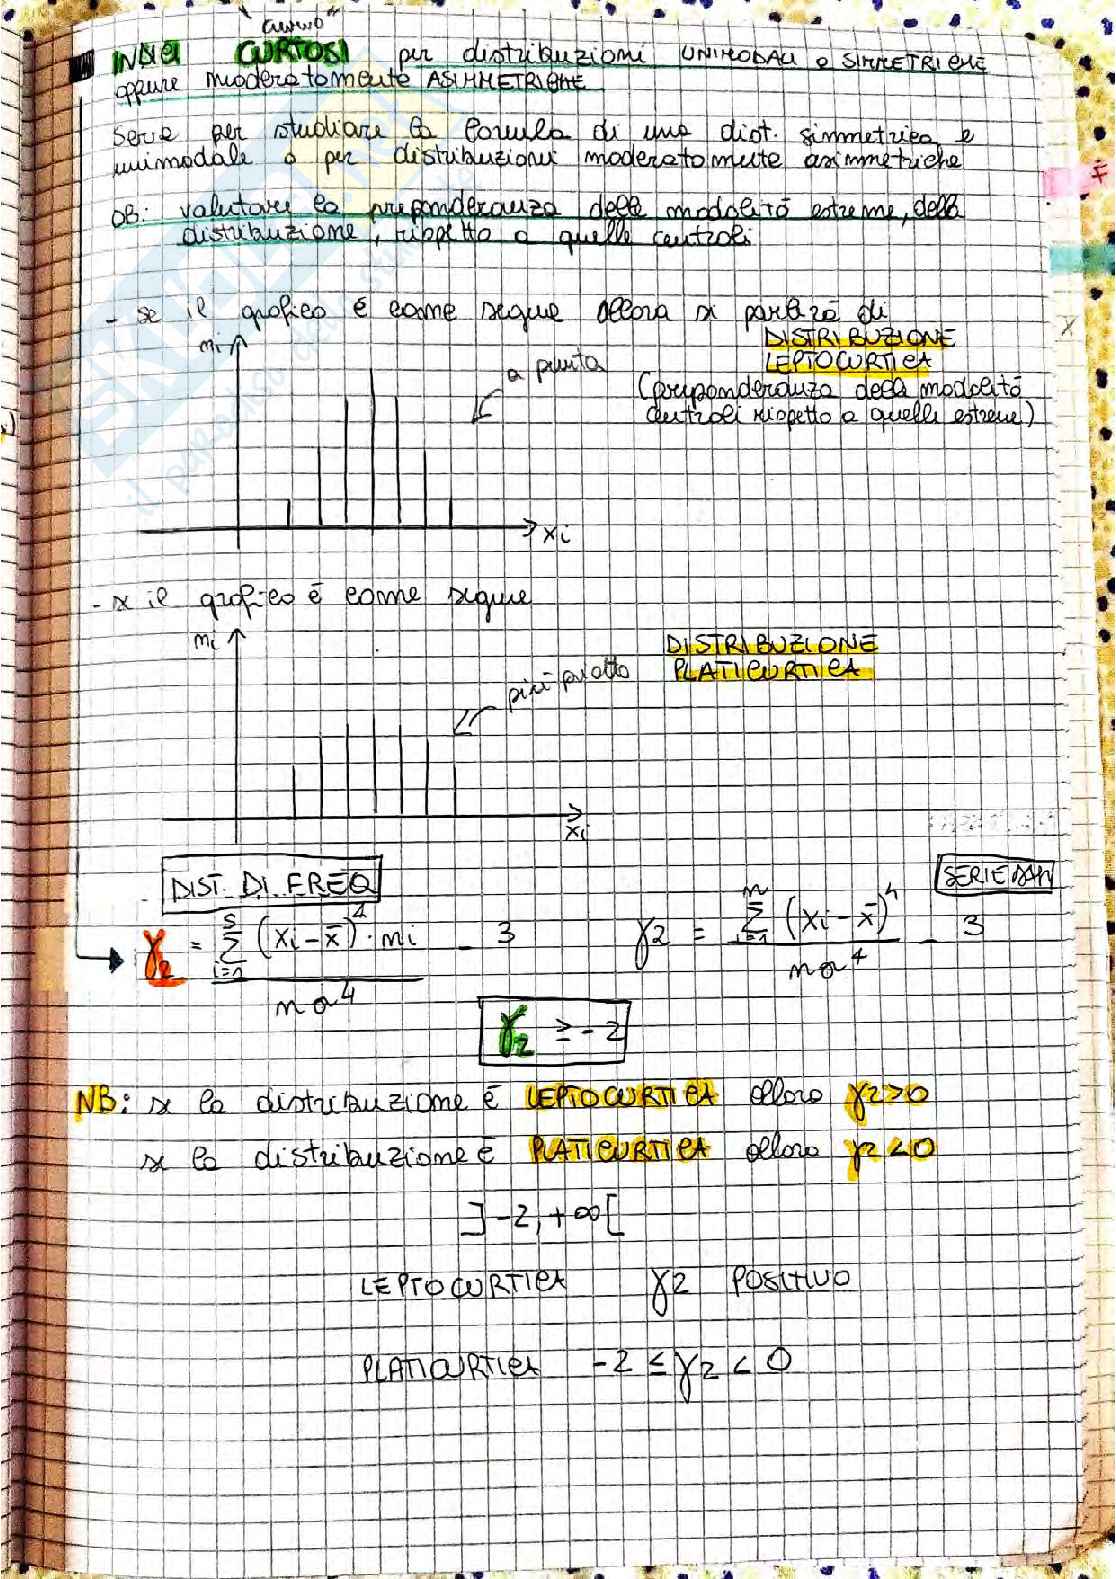 "curvo"
INDICI CURTOSI per distribuzioni UNIMODALI e SIMMETRICHE
oppure moderatamente ASIMMETRICHE
Serve per studiare la formula di una dist. simmetrica e
unimodale o per distribuzioni moderatamente asimmetriche
OB: valutare la preponderanza delle modalità estreme, della
distribuzione, rispetto a quelle centrali
- se il grafico è come segue allora si parlerà di
DISTRIBUZIONE
LEPTOCURTICA
(preponderanza della modalità
centrali rispetto a quelli estreme)
mi
a punta
xi
- se il grafico è come segue
mi
DISTRIBUZIONE
PLATICURTICA
più piatto
xi
DIST. DI FREQ
γ2 = Σ (xi - x̄)^4 · mi / nσ^4 - 3
s
i=1
SERIE
γ2 = Σ (xi - x̄)^4 / nσ^4 - 3
n
i=1
γ2 ≥ -2
NB: se la distribuzione è LEPTOCURTICA allora γ2>0
se la distribuzione è PLATICURTICA allora γ2<0
]-2, +∞[
LEPTOCURTICA γ2 POSITIVO
PLATICURTICA -2 ≤ γ2 < 0